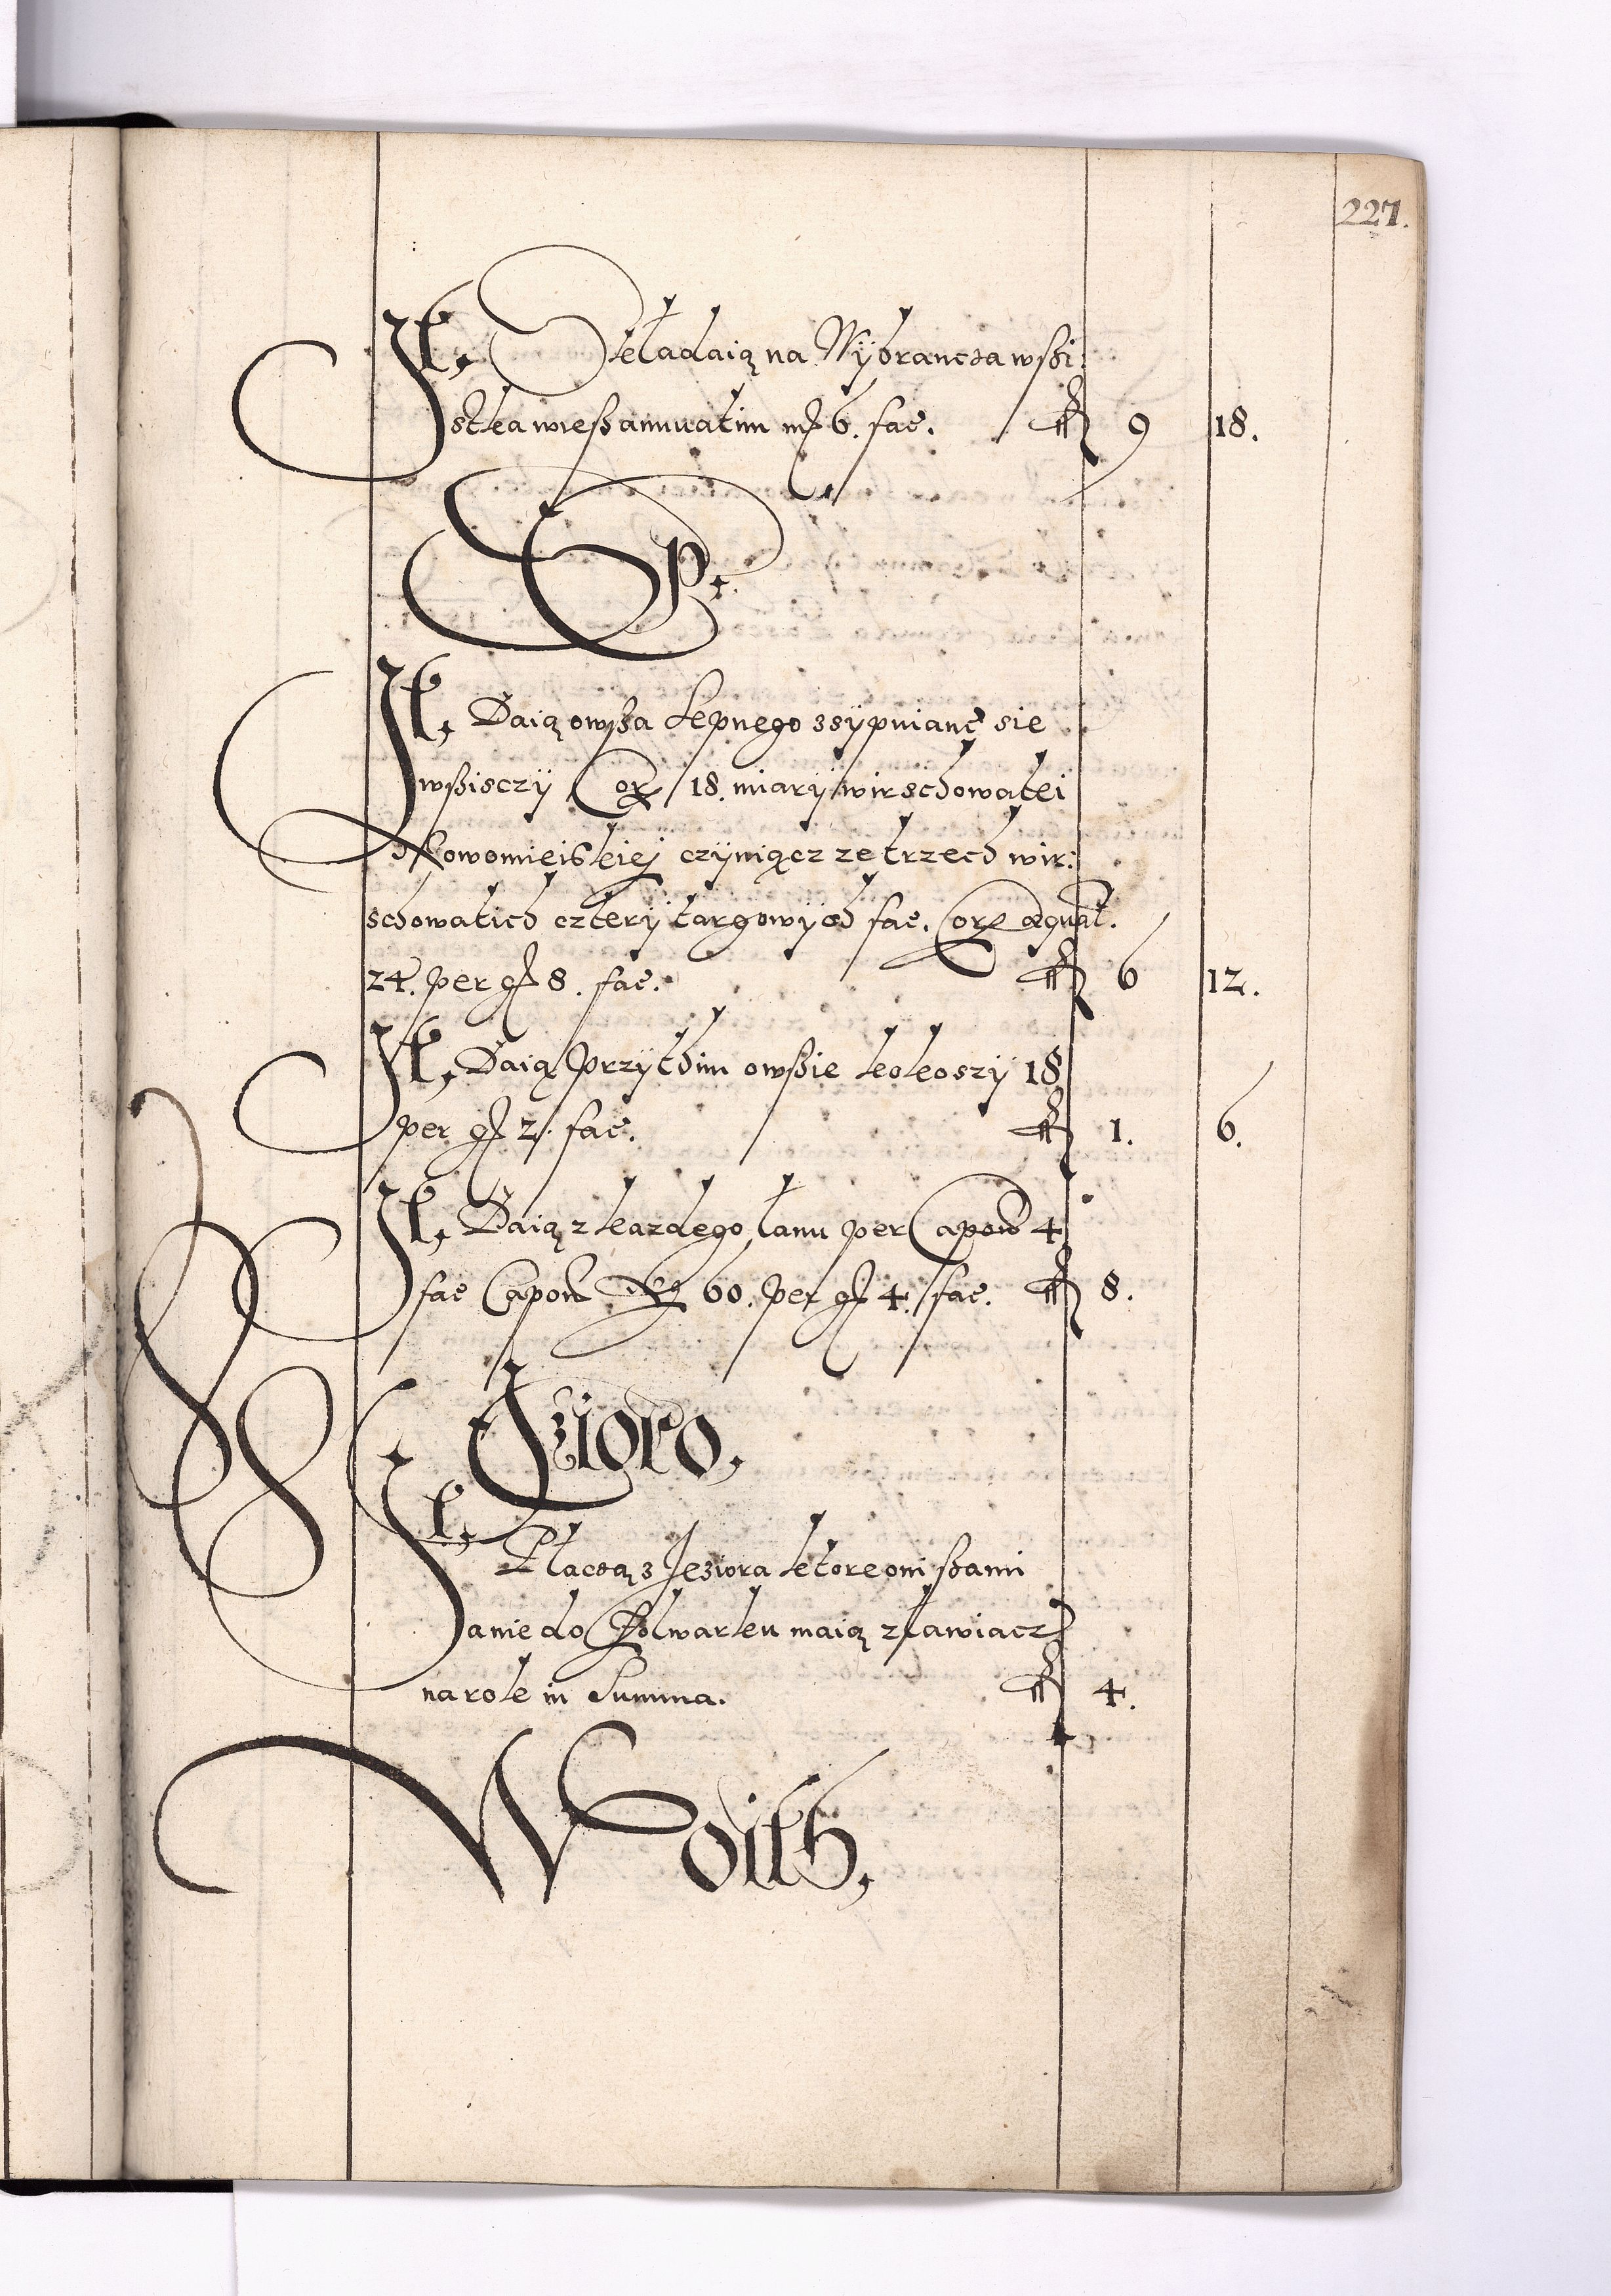 227.
It, Składaią na Wÿbrancza wßi:
stka wieß annuatim mꝶ 6. fac. fl 9 18.
Sp.
It, Daią owßa sepnego zsÿpuiancz się
wßisczÿ Cor 18. miarÿ wirschowatei
Nowomieiskiej czÿniącz ze trzech wir:
schowatich czterÿ targowÿch fac. Cor æquat.
24. per gꝶ 8. fac. fl 6 12.
It, Daią przÿ thim owßie kokoszÿ 18
per gꝶ 2. fac. fl 1. 6.
It, Daią z kazdego łanu per Capon 4
fac Capon 60. per gꝶ 4. fac. fl 8.
Jezioro,
It,
Płaczą z Jeziora ktore oni sami
a nie do Folwarku maią zstawiacz
na role in Summa. fl 4.
Woith,